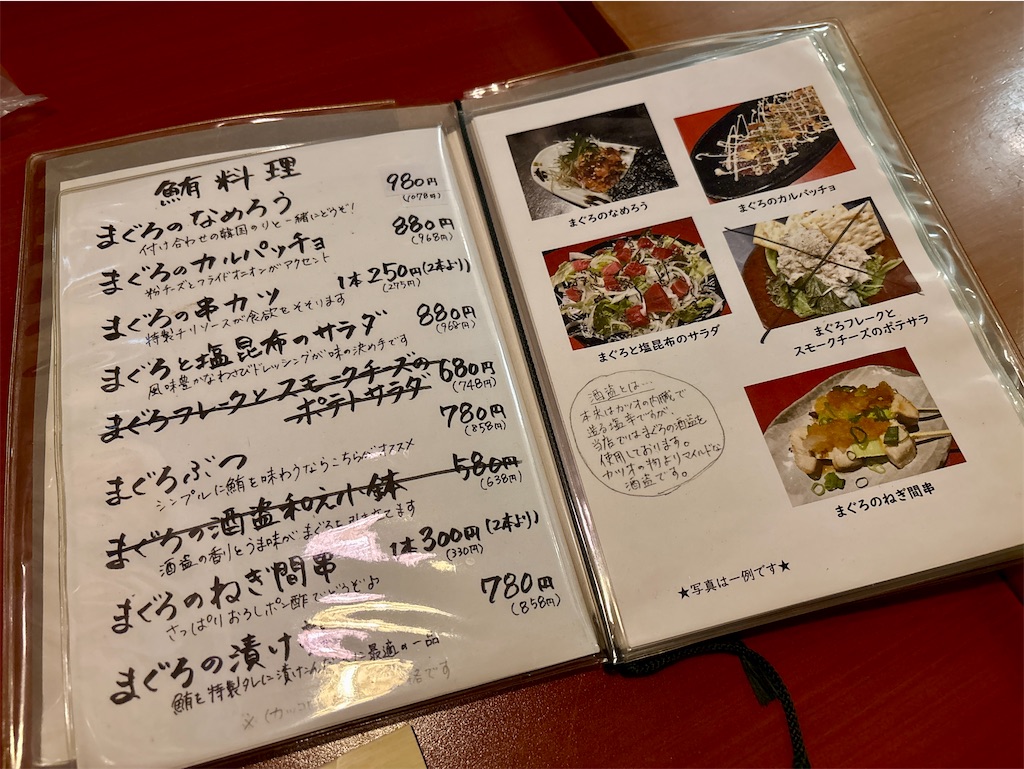 鮪料理
まぐろのなめろう 980円
(1078円)
付け合わせの韓国のりと一緒にどうぞ!
まぐろのカルパッチョ 880円
(968円)
粉チーズとフライドオニオンがアクセント
まぐろの串カツ 1本250円(2本より)
(275円)
特製チリソースが食欲をそそります
まぐろと塩昆布のサラダ 880円
(968円)
風味豊かなわさびドレッシングが味の決め手です
まぐろフレークとスモークチーズの 680円
ポテトサラダ (748円)
まぐろぶつ 780円
(858円)
シンプルに鮪を味わうならこちらがオススメ
まぐろの酒盗和え小鉢 580円
(638円)
酒盗の香りとうま味がまぐろを引き立てます
まぐろのねぎ間串 1本300円(2本より)
(330円)
さっぱりおろしポン酢でどうぞ
まぐろの漬け 780円
(858円)
鮪を特製タレに漬けこんだ に最適の一品
です
まぐろのなめろう
まぐろのカルパッチョ
まぐろと塩昆布のサラダ
まぐろフレークと
スモークチーズのポテサラ
酒盗とは…
本来はカツオの内臓で
造る塩辛ですが、
当店ではまぐろの酒盗を
使用しております。
カツオの物よりマイルドな
酒盗です。
まぐろのねぎ間串
★写真は一例です★